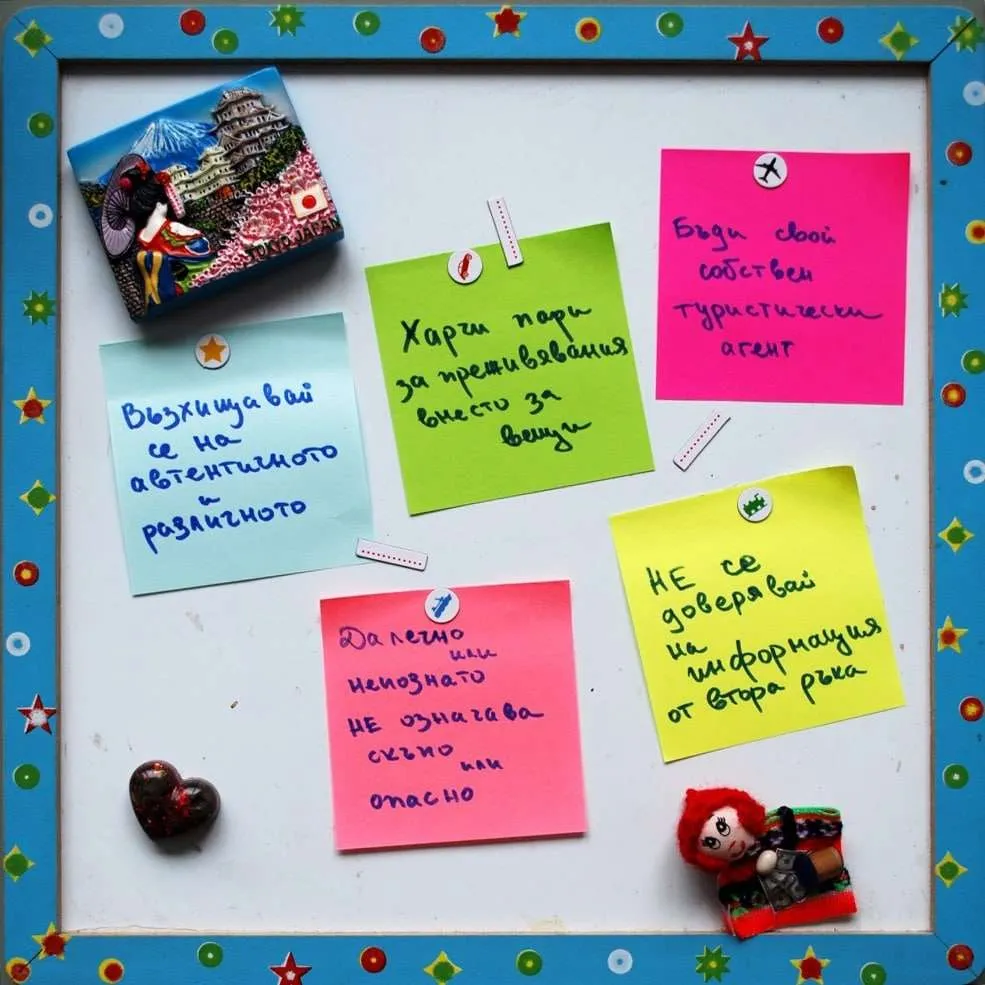 TOKYO JAPAN
Възхищавай
се на
автентичното
и
различното
Харчи пари
за преживявания
вместо за
вещи
Бъди свой
собствен
туристически
агент
Далечно
или
непознато
НЕ означава
скъпо
или
опасно
НЕ се
доверявай
на
информация
от втора ръка